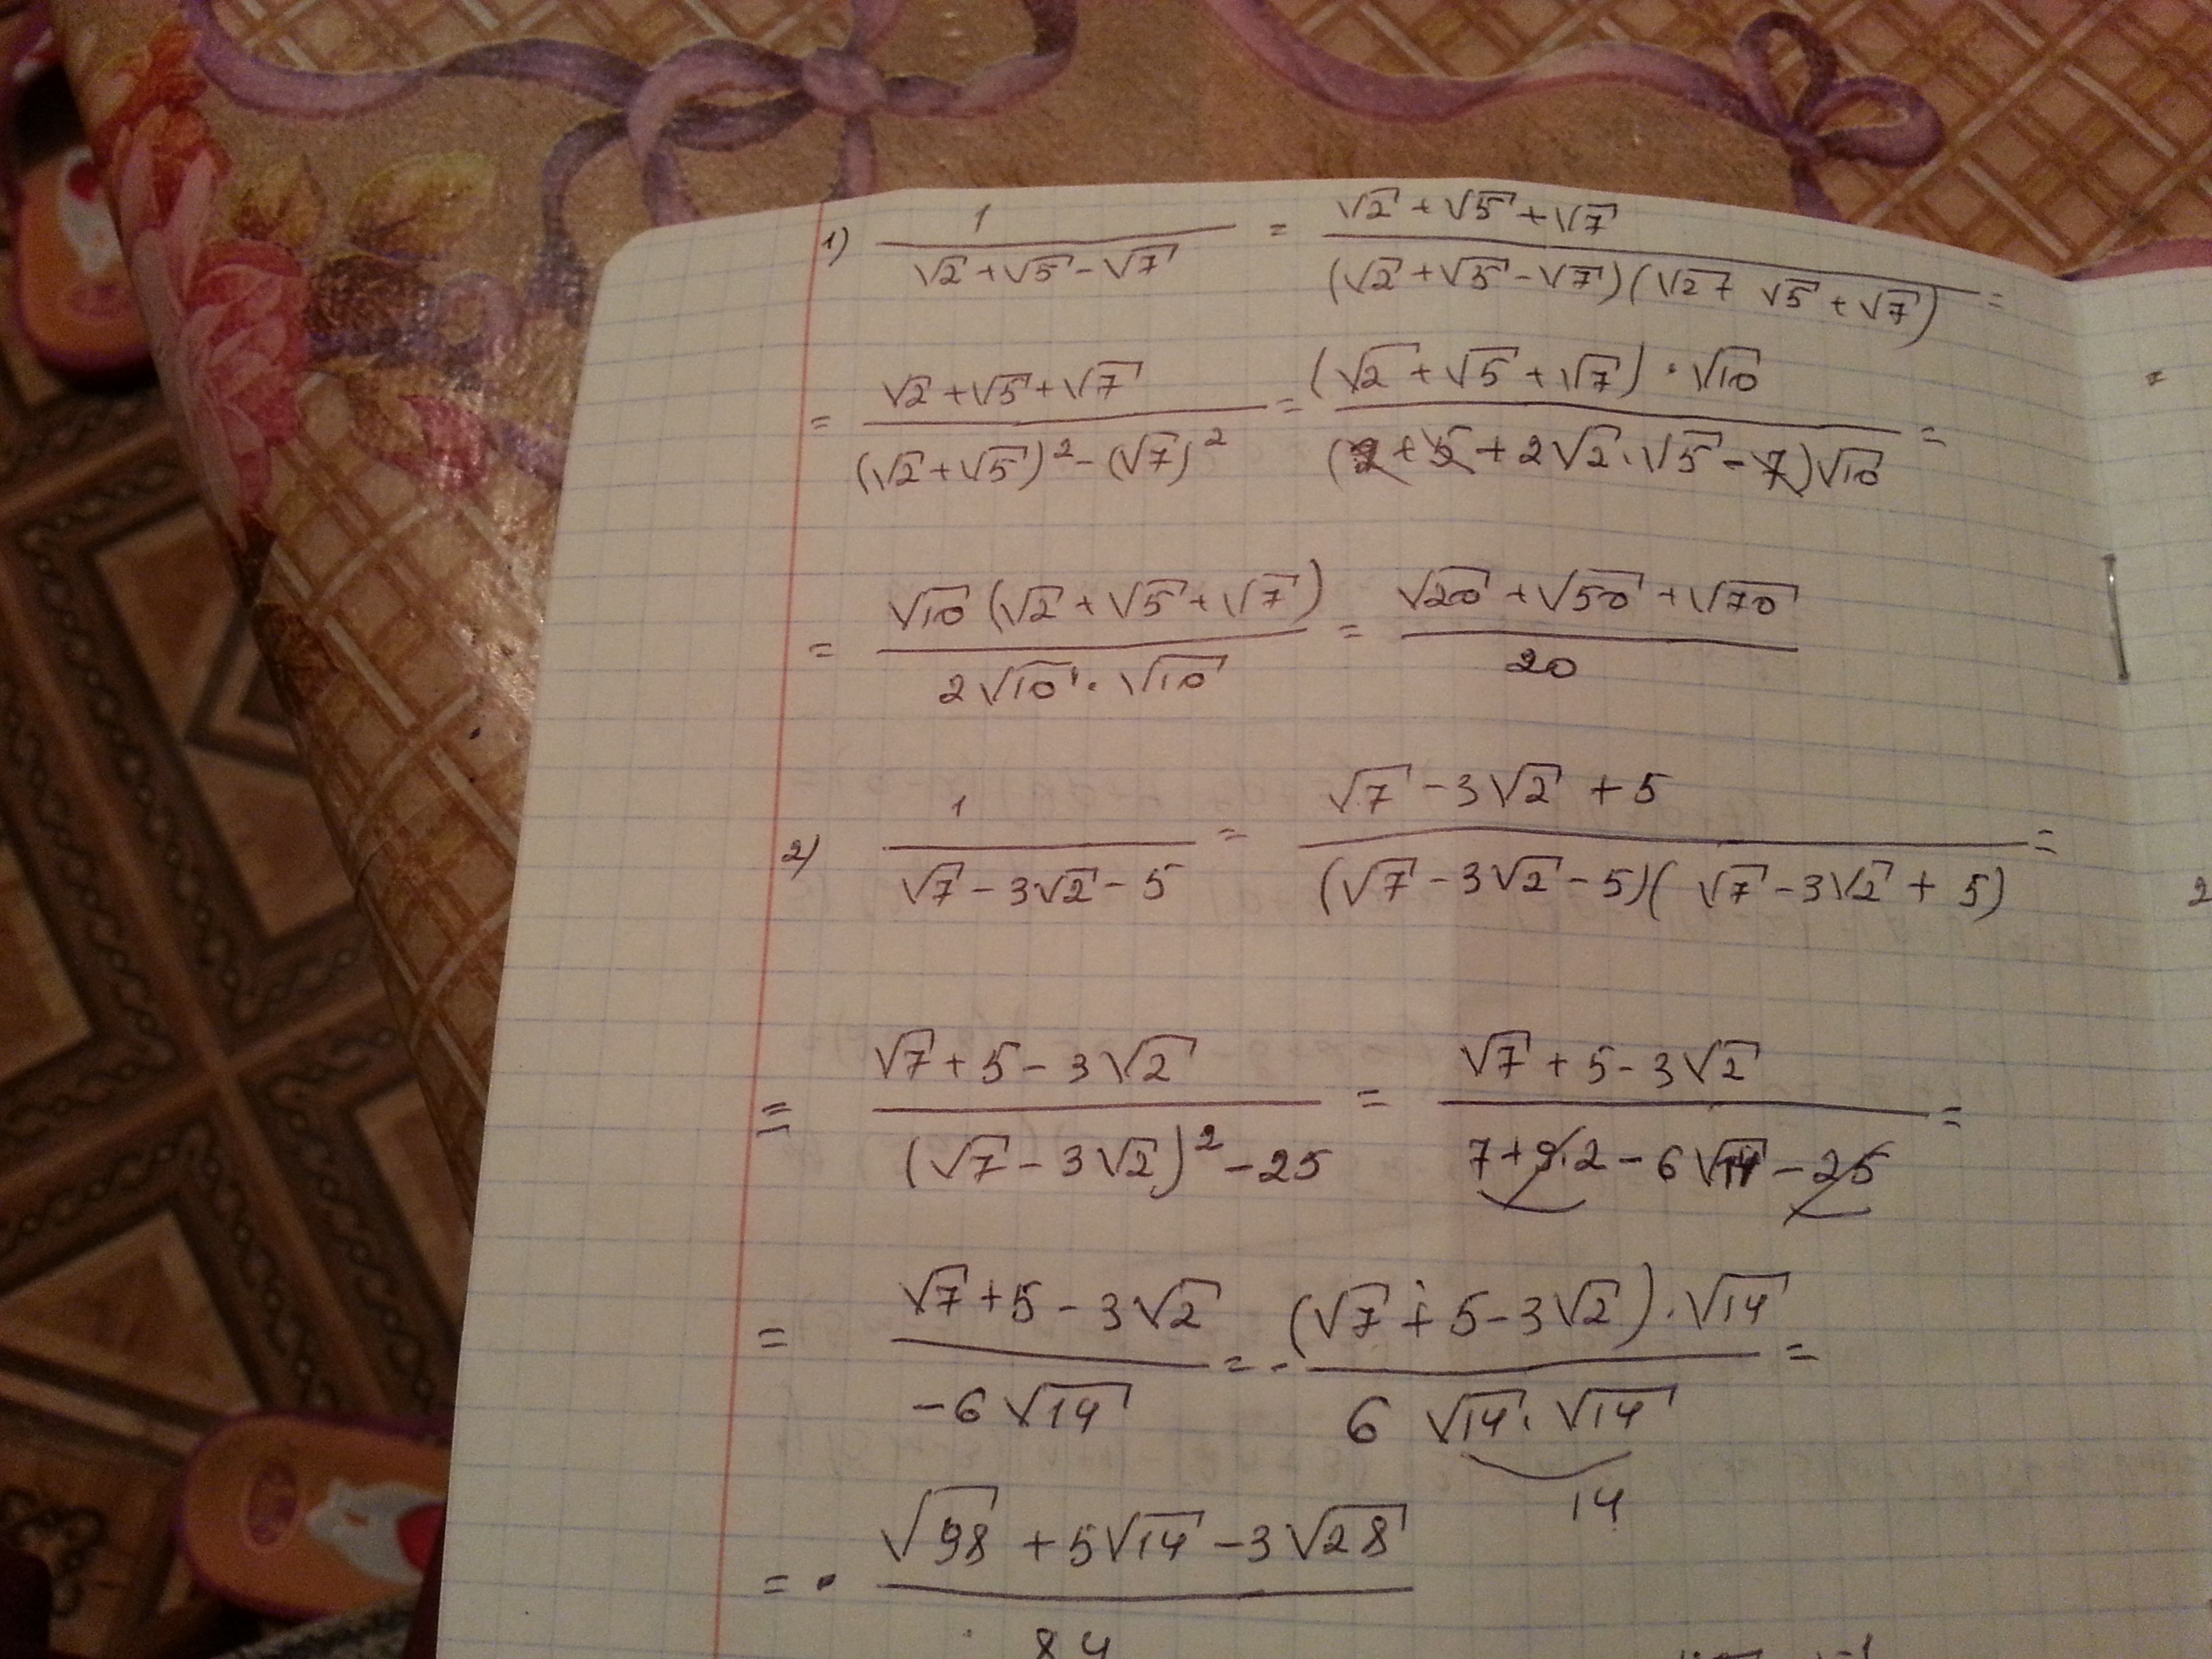 1) 1/(√2 + √5 - √7) = (√2 + √5 + √7)/((√2 + √5 - √7)(√2 + √5 + √7)) =
= (√2 + √5 + √7)/((√2 + √5)² - (√7)²) = ((√2 + √5 + √7) · √10)/((2 + 5 + 2√2 · √5 - 7)√10) =
= (√10 (√2 + √5 + √7))/(2√10 · √10) = (√20 + √50 + √70)/20
2) 1/(√7 - 3√2 - 5) = (√7 - 3√2 + 5)/((√7 - 3√2 - 5)(√7 - 3√2 + 5)) =
= (√7 + 5 - 3√2)/((√7 - 3√2)² - 25) = (√7 + 5 - 3√2)/(7 + 9·2 - 6√14 - 25) =
= (√7 + 5 - 3√2)/(-6√14) = - ((√7 + 5 - 3√2) · √14)/(6 √14 · √14) =
14
= - (√98 + 5√14 - 3√28)/84